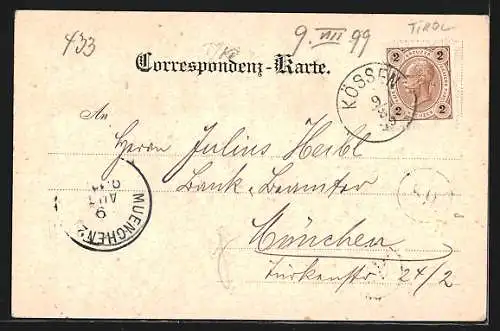 433
9. VIII 99
TIROL
Correspondenz-Karte.
KÖSSEN
9
8
99
2 2
2 2
An
Herrn Julius Heibl
Bank-Beamter
München
Türkenstr. 24/2
MUENCHEN 2
9
AUG